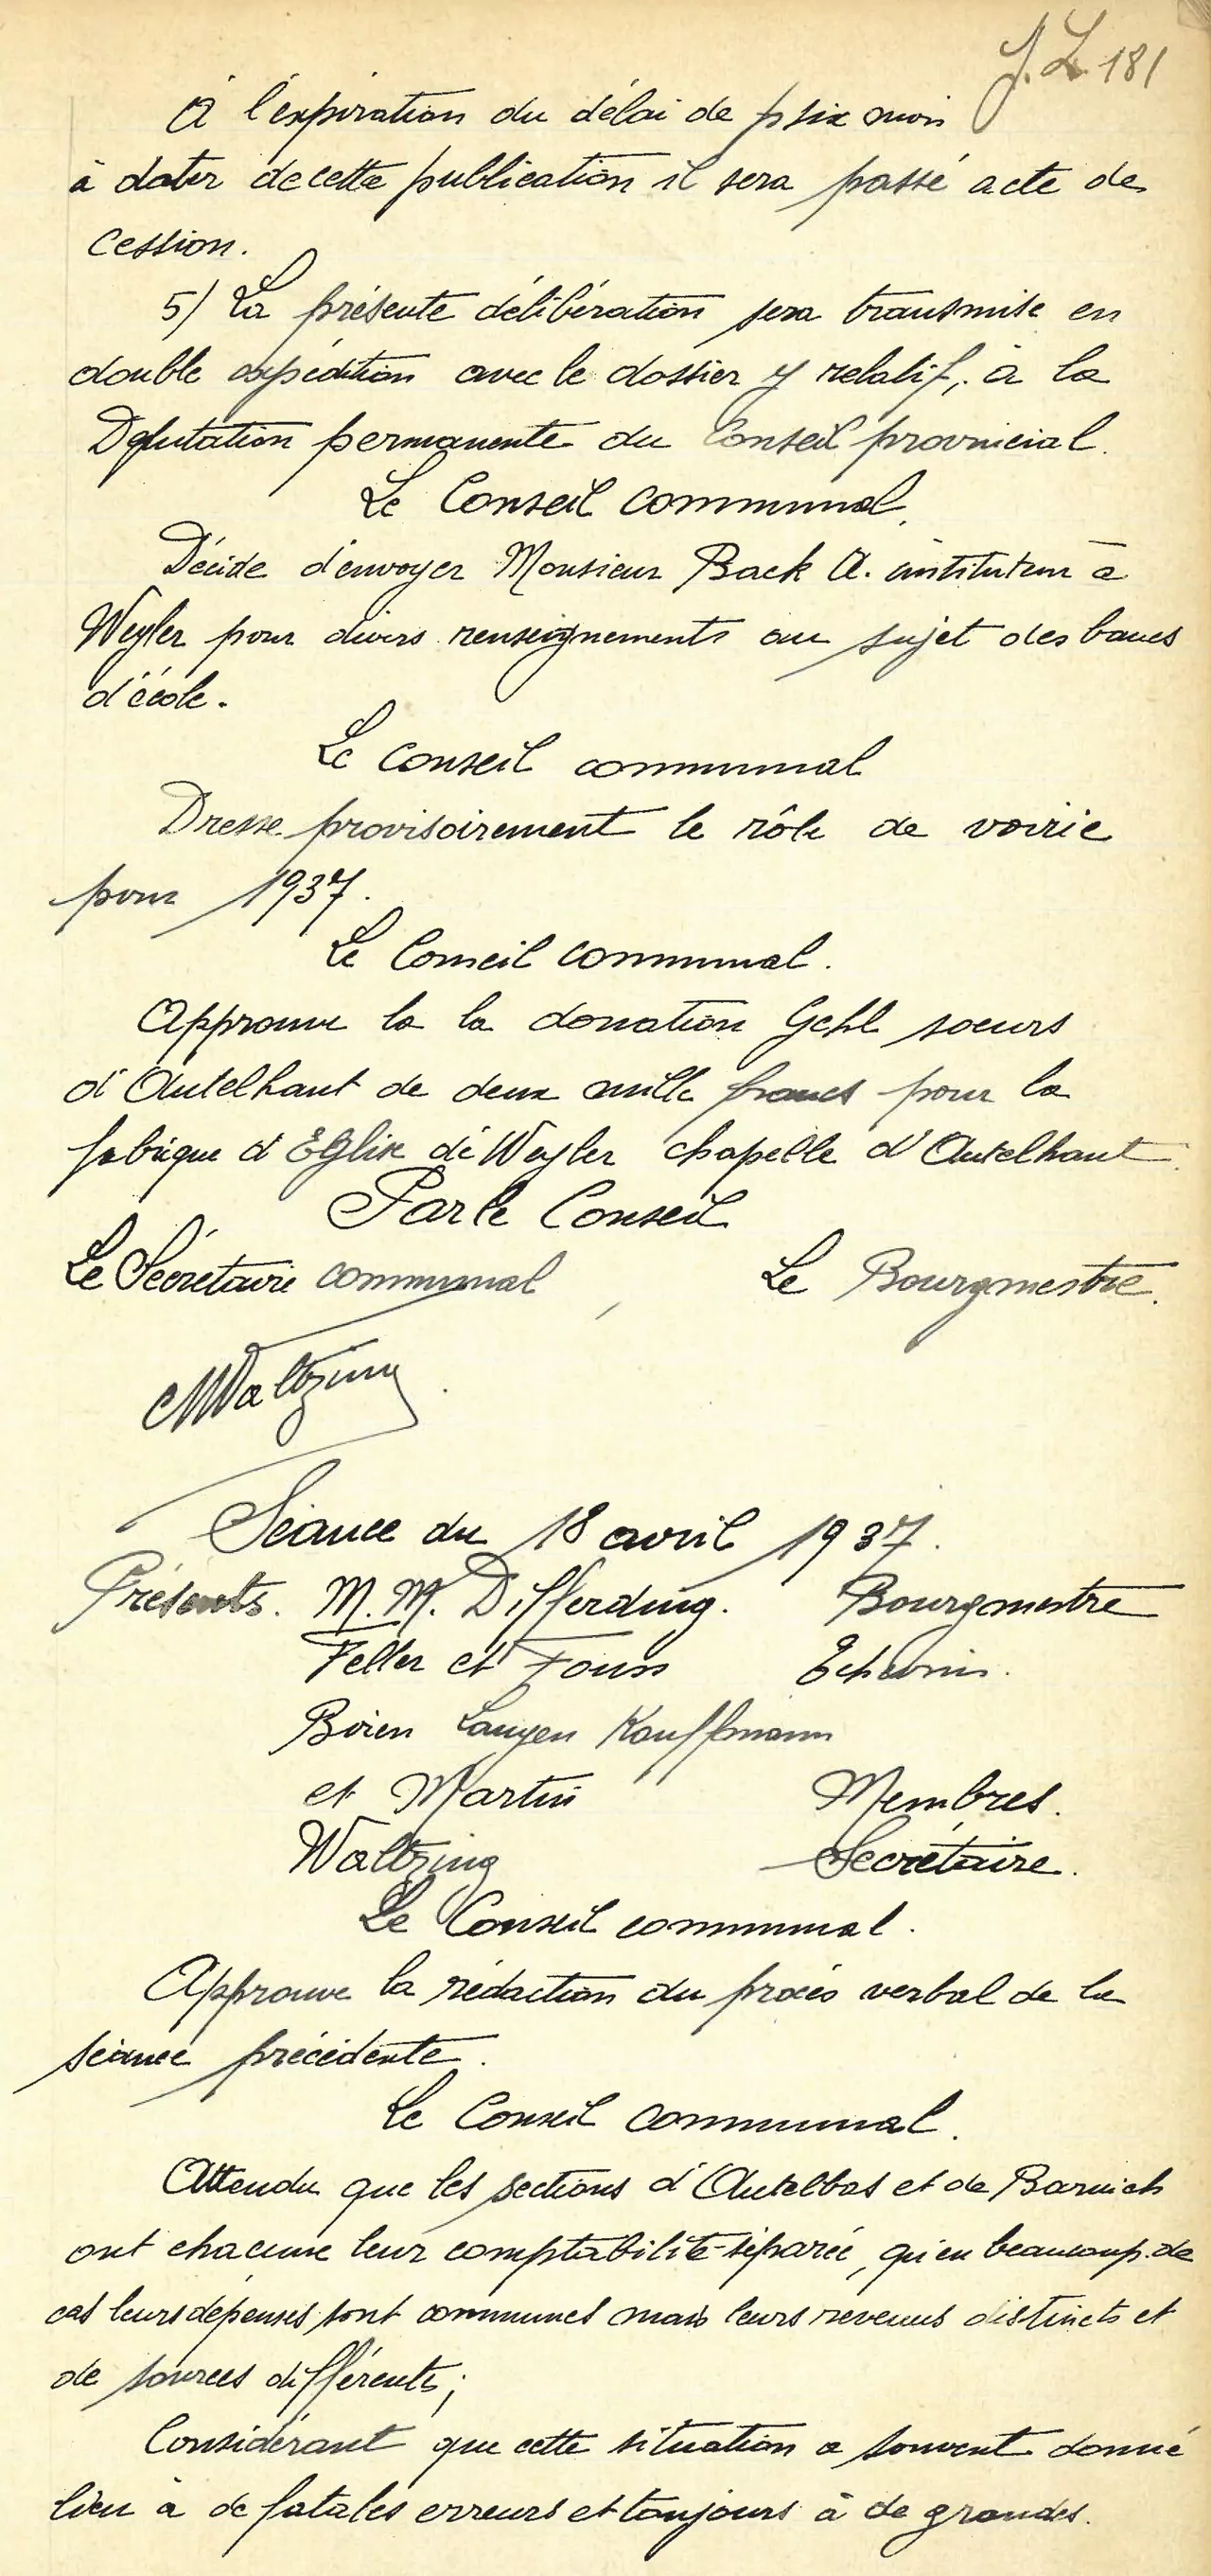 J.L. 181
À l'expiration du délai de p six mois
à dater de cette publication il sera passé acte de
cession.
5) La présente délibération sera transmise en
double expédition avec le dossier y relatif, à la
Députation permanente du Conseil provincial.
Le Conseil communal,
Décide d'envoyer Monsieur Back A. instituteur à
Weyler pour divers renseignements au sujet des bancs
d'école.
Le conseil communal
Dresse provisoirement le rôle de voirie
pour 1937.
Le Conseil communal.
Approuve la la donation Gehl soeurs
d'Autelhaut de deux mille francs pour la
fabrique d'Eglise de Weyler chapelle d'Autelhaut.
Par le Conseil
Le Sécrétaire communal, Le Bourgmestre.
Waltzing
Séance du 18 avril 1937.
Présents. M.M. Differding. Bourgmestre
Feller et Fouss Echevins.
Boien Langen Kauffmann
et Martin Membres.
Waltzing Secrétaire.
Le Conseil communal.
Approuve la rédaction du procès verbal de la
séance précédente.
Le Conseil communal.
Attendu que les sections d'Autelbas et de Barnich
ont chacune leur comptabilité séparée, qu'en beaucoup de
cas leurs dépenses sont communes mais leurs revenus distincts et
de sources différents;
Considérant que cette situation a souvent donné
lieu à de fatales erreurs et toujours à de grandes.